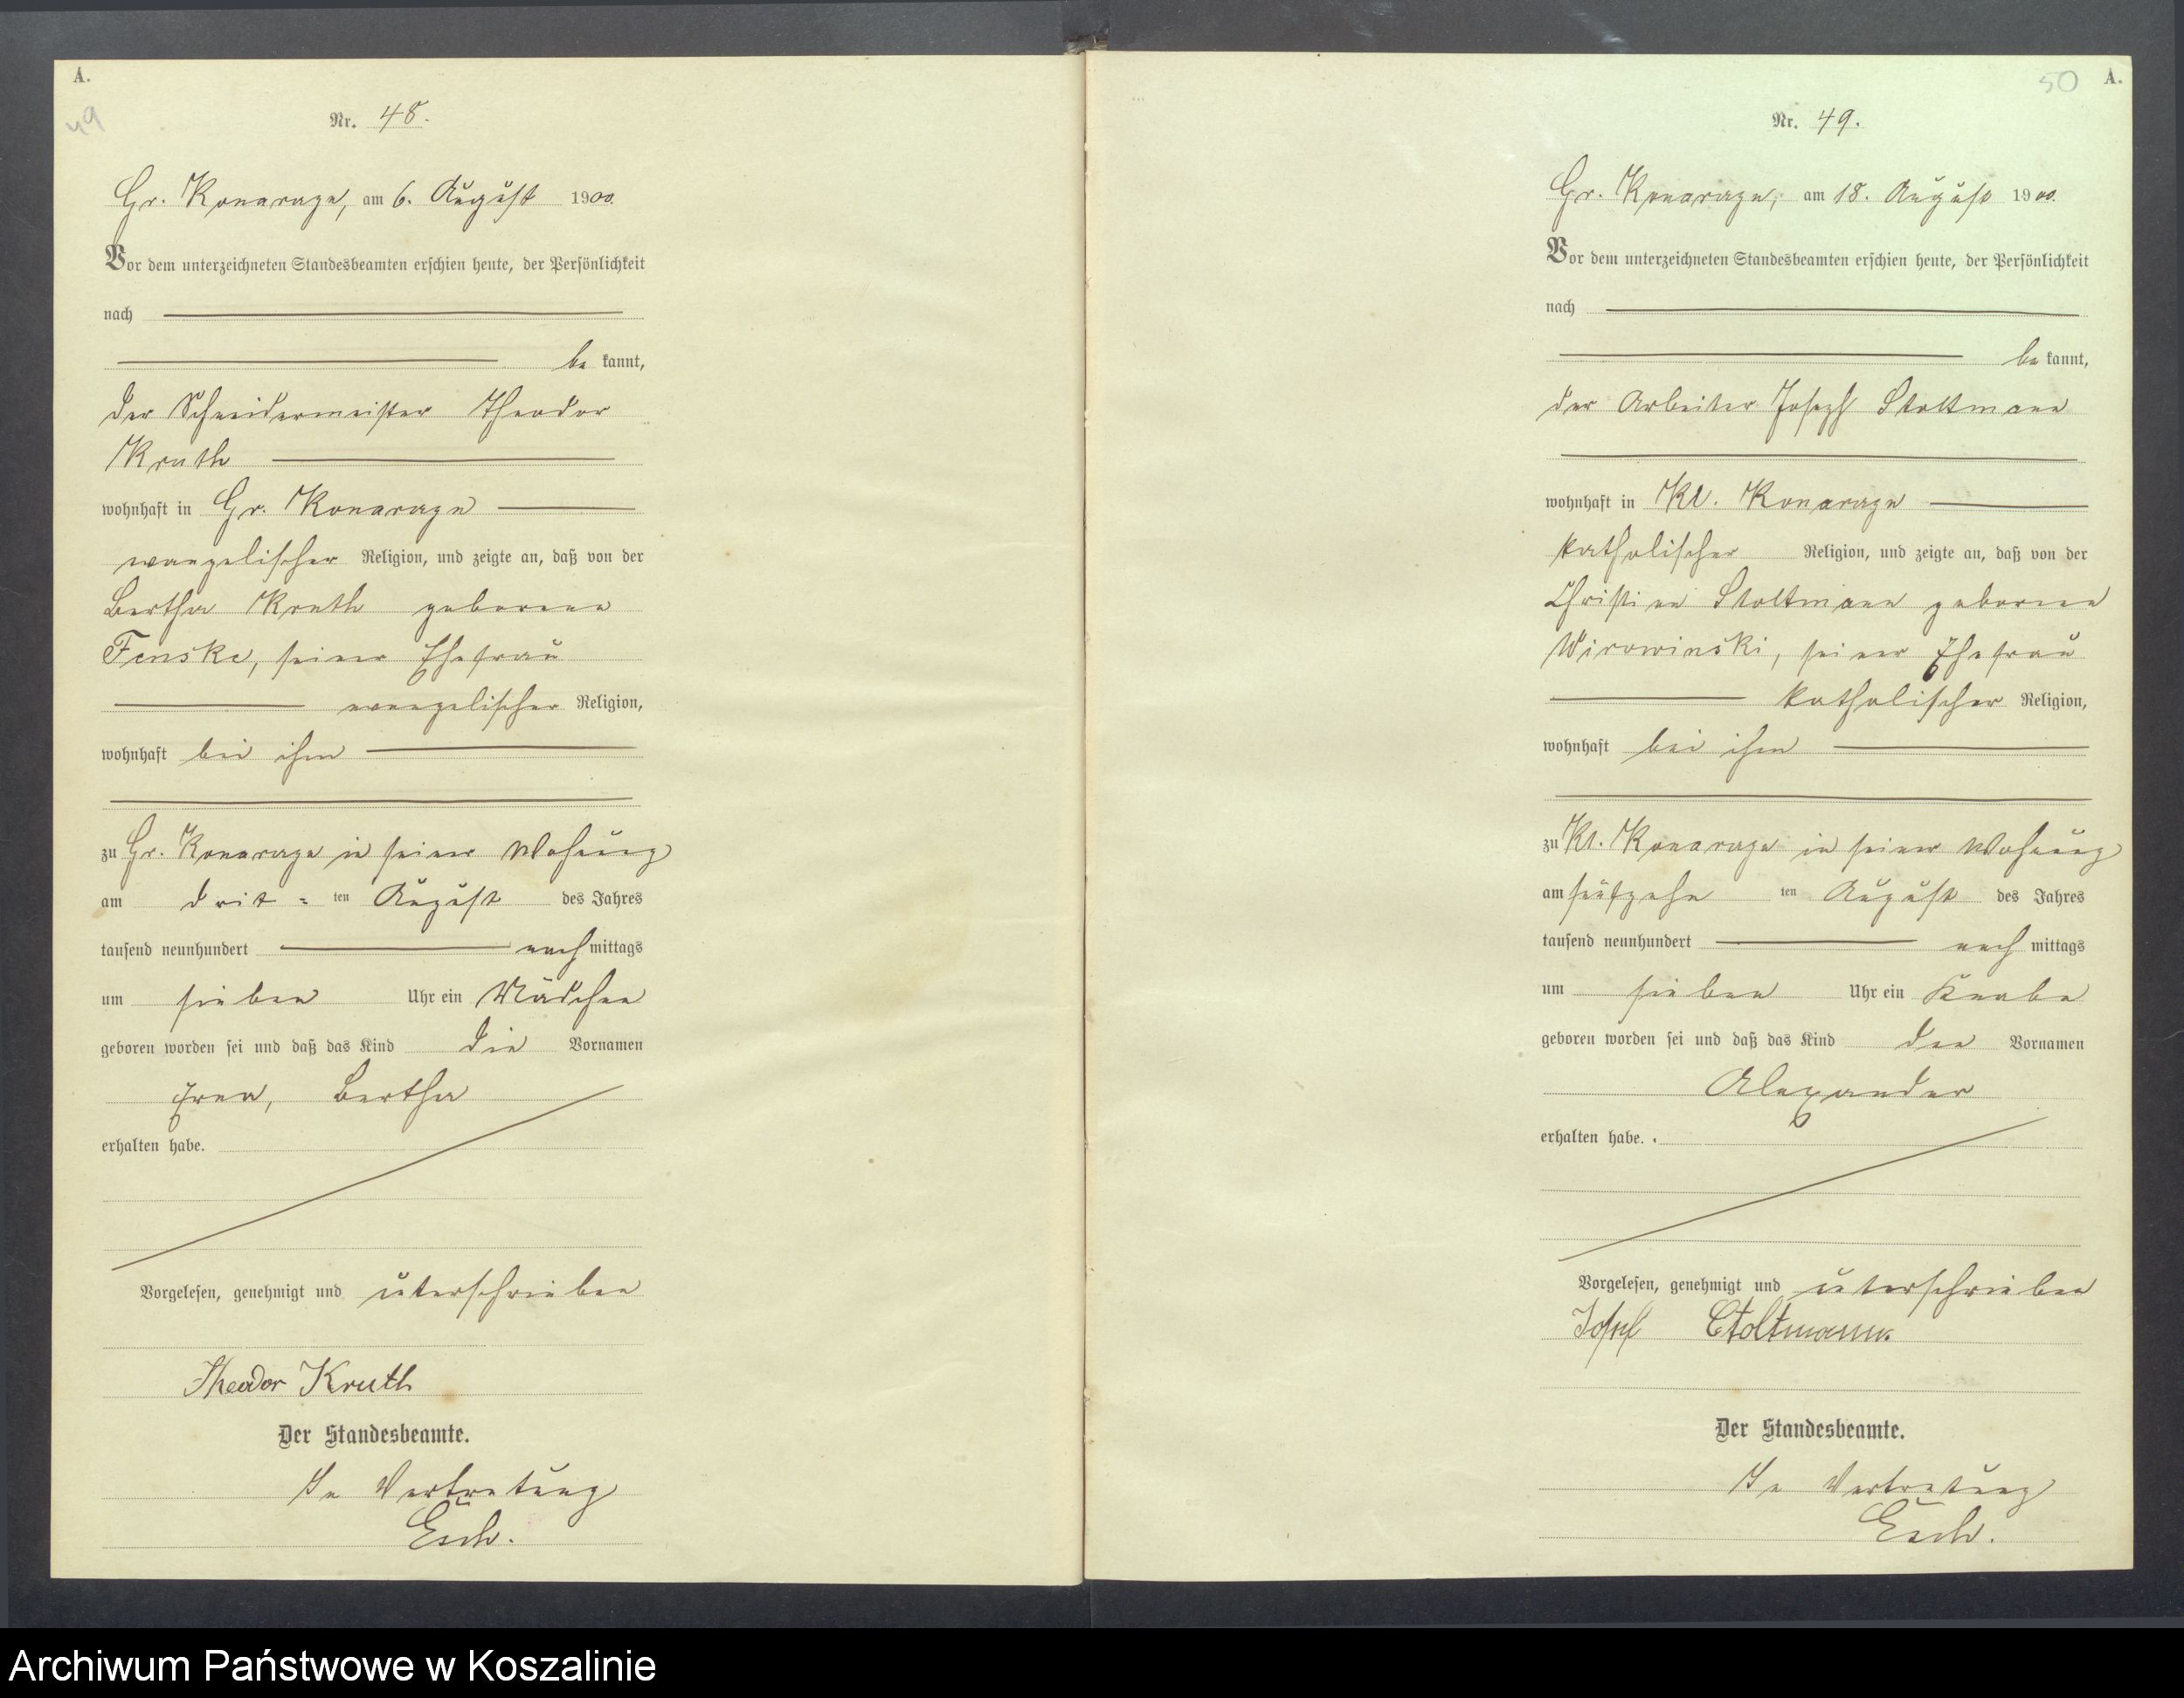 A.
49
Nr. 48.
Gr. Konarzyn, am 6. August 1900.
Vor dem unterzeichneten Standesbeamten erschien heute, der Persönlichkeit
nach
be kannt,
der Schneidermeister Theodor
Kruth
wohnhaft in Gr. Konarzyn
evangelischer Religion, und zeigte an, daß von der
Bertha Kruth geborene
Fenske, seiner Ehefrau
evangelischer Religion,
wohnhaft bei ihm
zu Gr. Konarzyn in seiner Wohnung
am drit = ten August des Jahres
tausend neunhundert nach mittags
um sieben Uhr ein Mädchen
geboren worden sei und daß das Kind die Vornamen
Bertha
erhalten habe.
Vorgelesen, genehmigt und unterschrieben
Theodor Kruth
Der Standesbeamte.
In Vertretung
Esch.
50
A.
Nr. 49.
Gr. Konarzyn, am 18. August 1900.
Vor dem unterzeichneten Standesbeamten erschien heute, der Persönlichkeit
nach
be kannt,
der Arbeiter Joseph Stoltmann
wohnhaft in Kl. Konarzyn
katholischer Religion, und zeigte an, daß von der
Christine Stoltmann geborene
Wirowinski, seiner Ehefrau
katholischer Religion,
wohnhaft bei ihm
zu Kl. Konarzyn in seiner Wohnung
am fünfzehn ten August des Jahres
tausend neunhundert nach mittags
um sieben Uhr ein Knabe
geboren worden sei und daß das Kind den Vornamen
Alexander
erhalten habe.
Vorgelesen, genehmigt und unterschrieben
Josef Stoltmann
Der Standesbeamte.
In Vertretung
Esch.
Archiwum Państwowe w Koszalinie